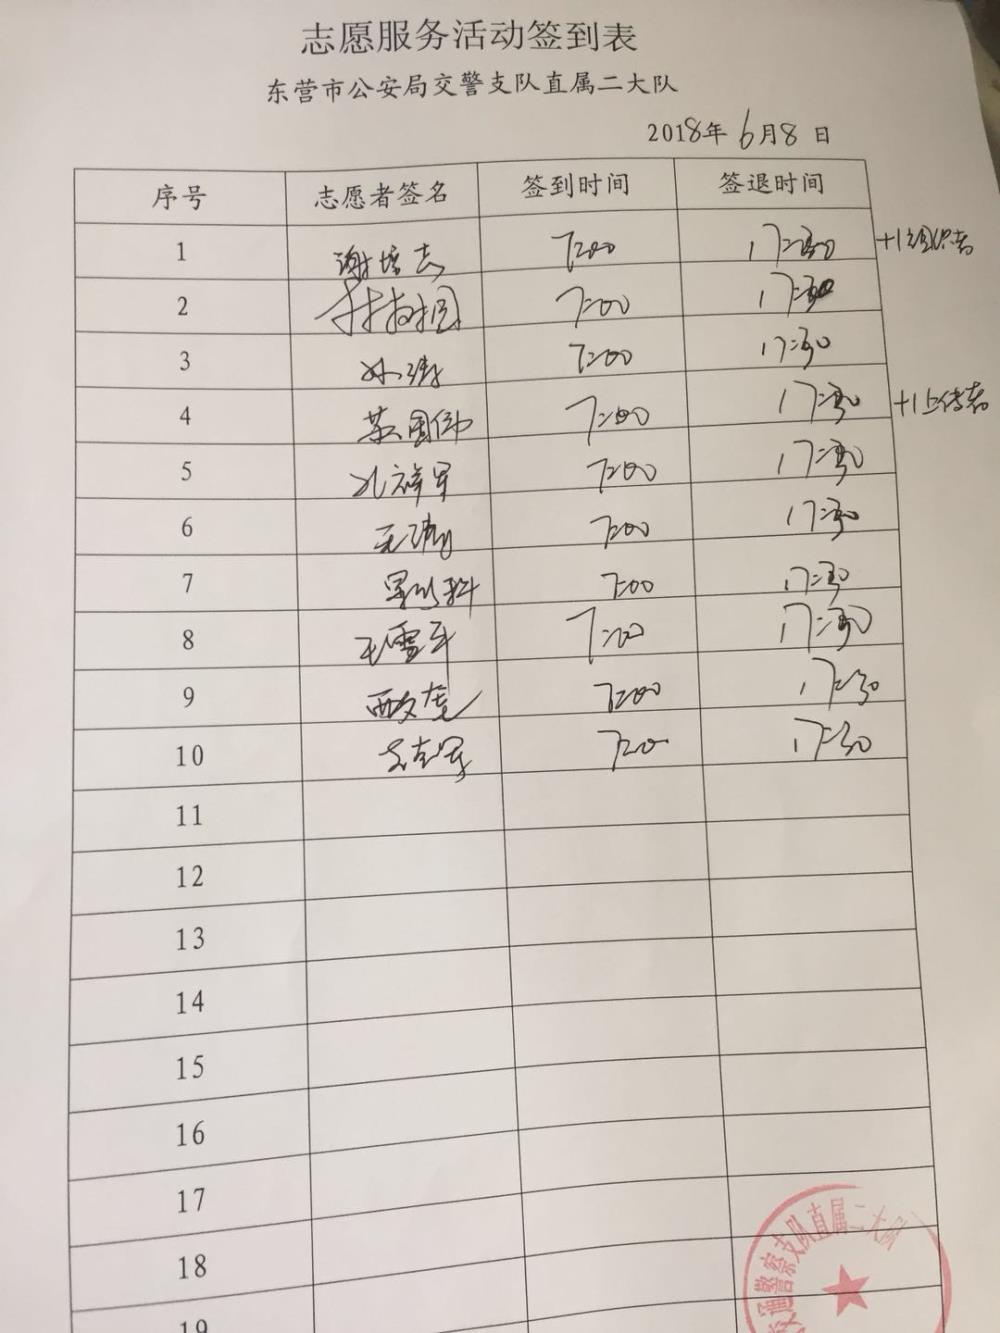 志愿服务活动签到表
东营市公安局交警支队直属二大队
2018年6月8日
序号 志愿者签名 签到时间 签退时间
1 谢培志 7:00 17:30 +1组织者
2 7:00 17:30
3 7:00 17:30
4 7:00 17:30 +1上传者
5 孔祥军 7:00 17:30
6 7:00 17:30
7 7:00 17:30
8 王雪军 7:00 17:30
9 7:00 17:30
10 17:30
11
12
13
14
15
16
17
18
19
交通警察支队直属二大队